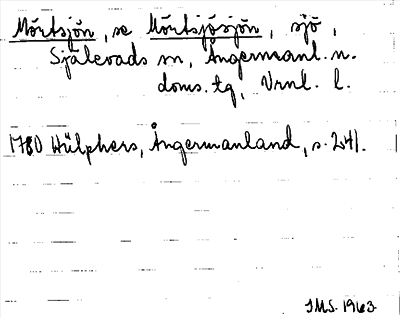 Mörtsjön, se Mörtsjösjön, sjö,
Själevads sn, Ångermanl. n.
doms. tg, Vrnl. l.
1780 Hülphers, Ångermanland, s. 241.
JMS. 1963.